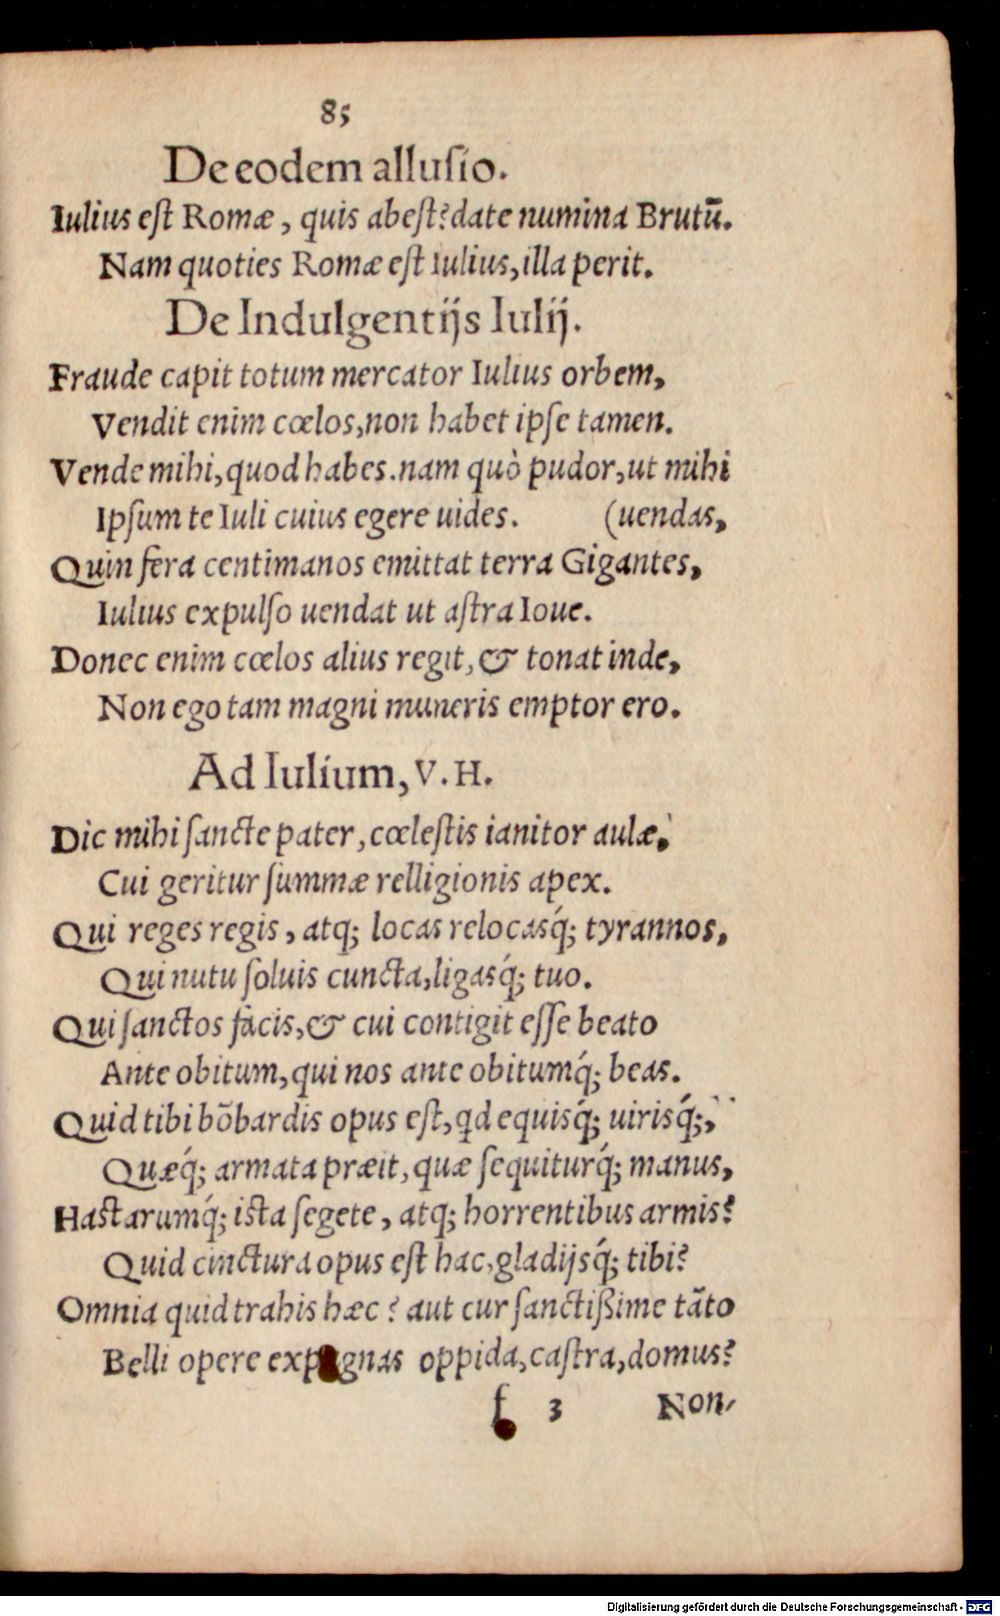 85
De eodem allusio.
Iulius est Romæ, quis abest? date numina Brutũ.
Nam quoties Romæ est Iulius, illa perit.
De Indulgentijs Iulij.
Fraude capit totum mercator Iulius orbem,
Vendit enim cœlos, non habet ipse tamen.
Vende mihi, quod habes. nam quò pudor, ut mihi
Ipsum te Iuli cuius egere uides. (uendas,
Quin fera centimanos emittat terra Gigantes,
Iulius expulso uendat ut astra Ioue.
Donec enim cœlos alius regit, & tonat inde,
Non ego tam magni muneris emptor ero.
Ad Iulium, V. H.
Dic mihi sancte pater, cœlestis ianitor aulæ,
Cui geritur summæ relligionis apex.
Qui reges regis, atq; locas relocasq́; tyrannos,
Qui nutu soluis cuncta, ligasq́; tuo.
Qui sanctos facis, & cui contigit esse beato
Ante obitum, qui nos ante obitumq́; beas.
Quid tibi bõbardis opus est, qd equisq́; uirisq́;,
Quæq́; armata præit, quæ sequiturq́; manus,
Hastarumq́; ista segete, atq; horrentibus armis?
Quid cinctura opus est hac, gladijsq́; tibi?
Omnia quid trahis hæc? aut cur sanctißime tãto
Belli opere expugnas oppida, castra, domus?
f 3 Non-
Digitalisierung gefördert durch die Deutsche Forschungsgemeinschaft - DFG